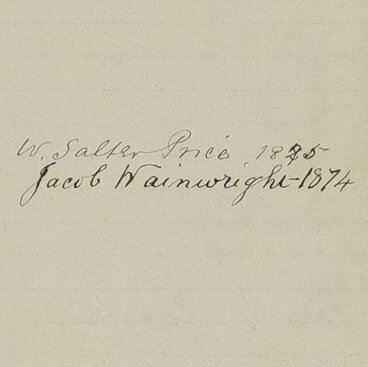 W. Salter Price. 1875
Jacob Wainwright-1874